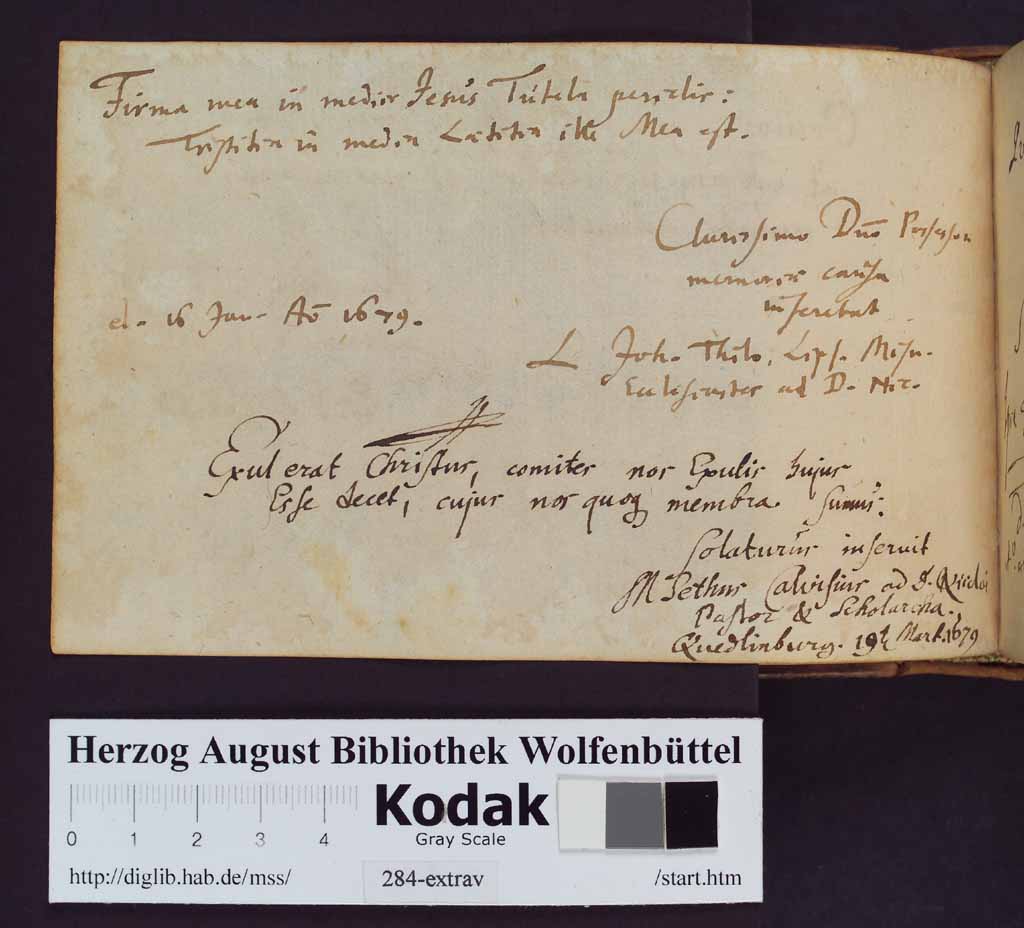 Firma mea in medios Jesus Tutela periclis:
Tristitia in media Laetitia ille Mea est.
Clarissimo Dno Possessori
memoriae causa
inserebat
d. 16 Jan. Ao 1679.
L Joh. Thilo, Lips. Misn.
Ecclesiastes ad D. Nic.
Exul erat Christus, comites nos Exulis hujus
Esse decet, cujus nos quoq membra sumus:
Solaturus inseruit
M Sethus Calvisius ad D.
Pastor & Scholarcha.
Quedlinburg. 19 Mart. 1679
Herzog August Bibliothek Wolfenbüttel
Kodak
Gray Scale
0 1 2 3 4
http://diglib.hab.de/mss/ 284-extrav /start.htm